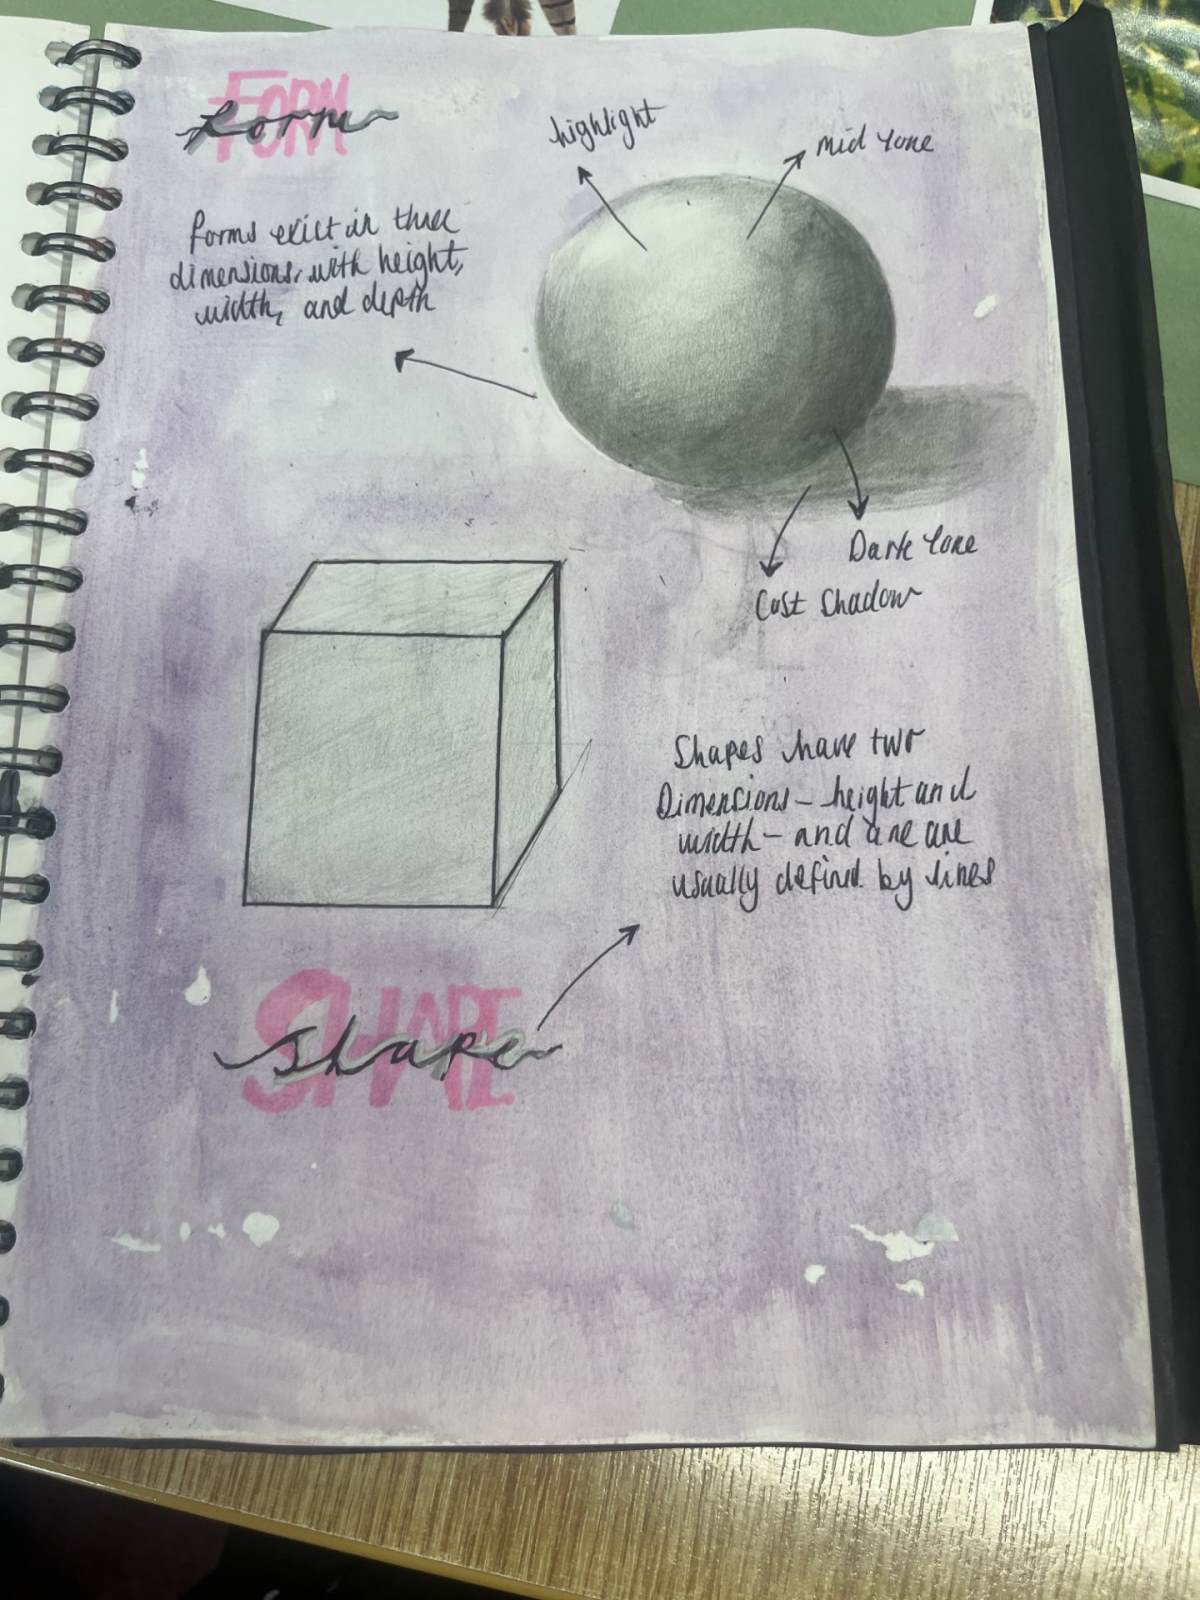 FORM
form
highlight
mid tone
forms exist in three
dimensions, with height,
width, and depth
Dark tone
Cast Shadow
Shapes have two
Dimensions - height and
width - and are are
usually defined by lines
SHAPE
shape